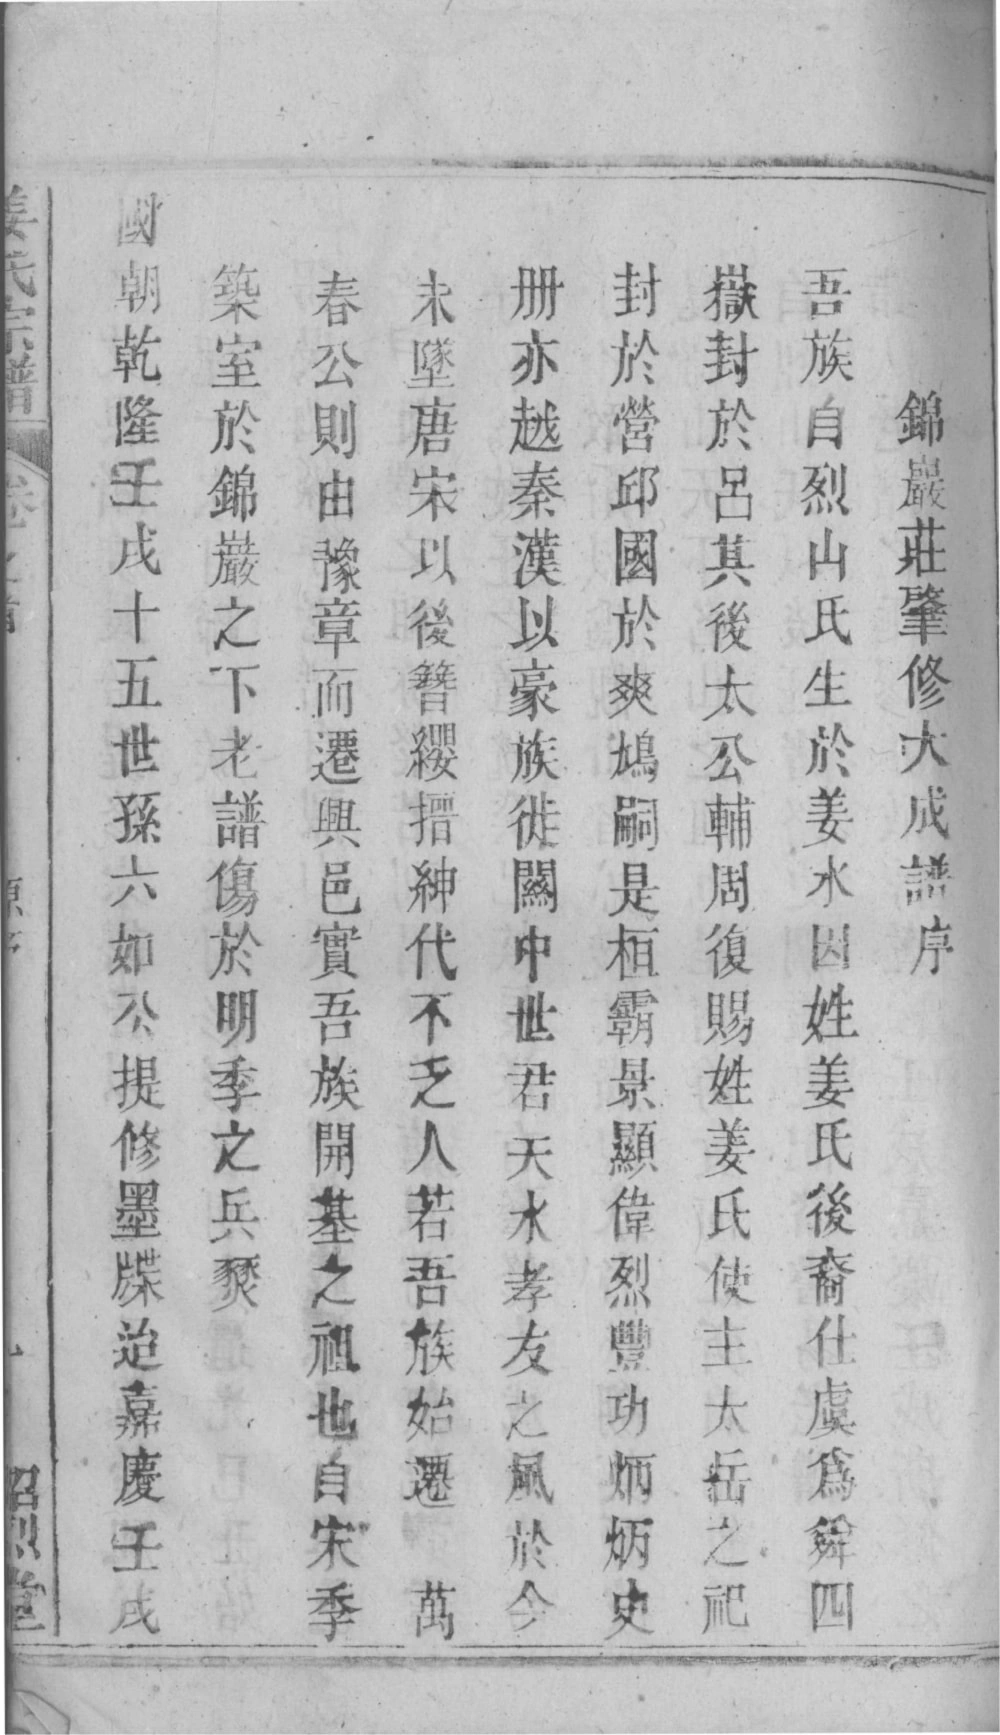 錦巖莊肇修大成譜序
吾族自烈山氏生於姜水因姓姜氏後裔仕虞爲舜四
嶽封於呂其後太公輔周復賜姓姜氏使主太岳之祀
封於營邱國於爽鳩嗣是桓霸景顯偉烈豐功炳炳史
册亦越秦漢以豪族徙關中世君天水孝友之風於今
未墜唐宋以後簪纓搢紳代不乏人若吾族始遷 萬
春公則由豫章而遷興邑實吾族開基之祖也自宋季
築室於錦巖之下老譜傷於明季之兵燹
國朝乾隆壬戌十五世孫六如公提修墨牒迨嘉慶壬戌
姜氏宗譜 卷之首 原序 一 昭烈堂